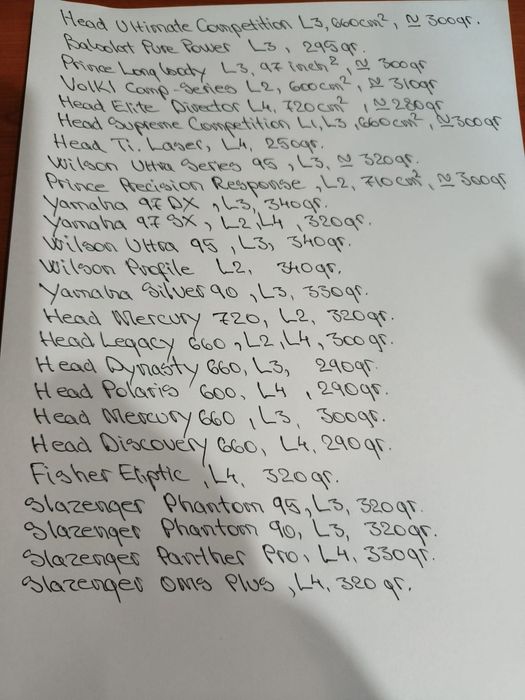 Head Ultimate Competition L3, 660cm², ≈ 300gr.
Babolat Pure Power L3, 295gr.
Prince Longbody L3, 97 inch², ≈ 300gr
Volkl Comp-Series L2, 600cm², ≈ 310gr
Head Elite Director L4, 720cm², ≈280gr
Head Supreme Competition L1,L3, 660cm², ≈300gr
Head Ti. Laser, L4, 250gr.
Wilson Ultra Series 95, L3, ≈ 320gr.
Prince Precision Response, L2, 710cm², ≈ 300gr
Yamaha 97 DX, L3, 340gr.
Yamaha 97 SX, L2,L4, 320gr.
Wilson Ultra 95, L3, 340gr.
Wilson Profile L2, 340gr.
Yamaha Silver 90, L3, 330gr.
Head Mercury 720, L2, 320gr.
Head Legacy 660, L2,L4, 300gr.
Head Dynasty 660, L3, 290gr.
Head Polaris 600, L4, 290gr.
Head Mercury 660, L3, 300gr.
Head Discovery 660, L4, 290gr.
Fisher Eliptic, L4, 320gr.
Slazenger Phantom 95, L3, 320gr.
Slazenger Phantom 90, L3, 320gr.
Slazenger Panther Pro, L4, 330gr.
Slazenger OMS Plus, L4, 320gr.